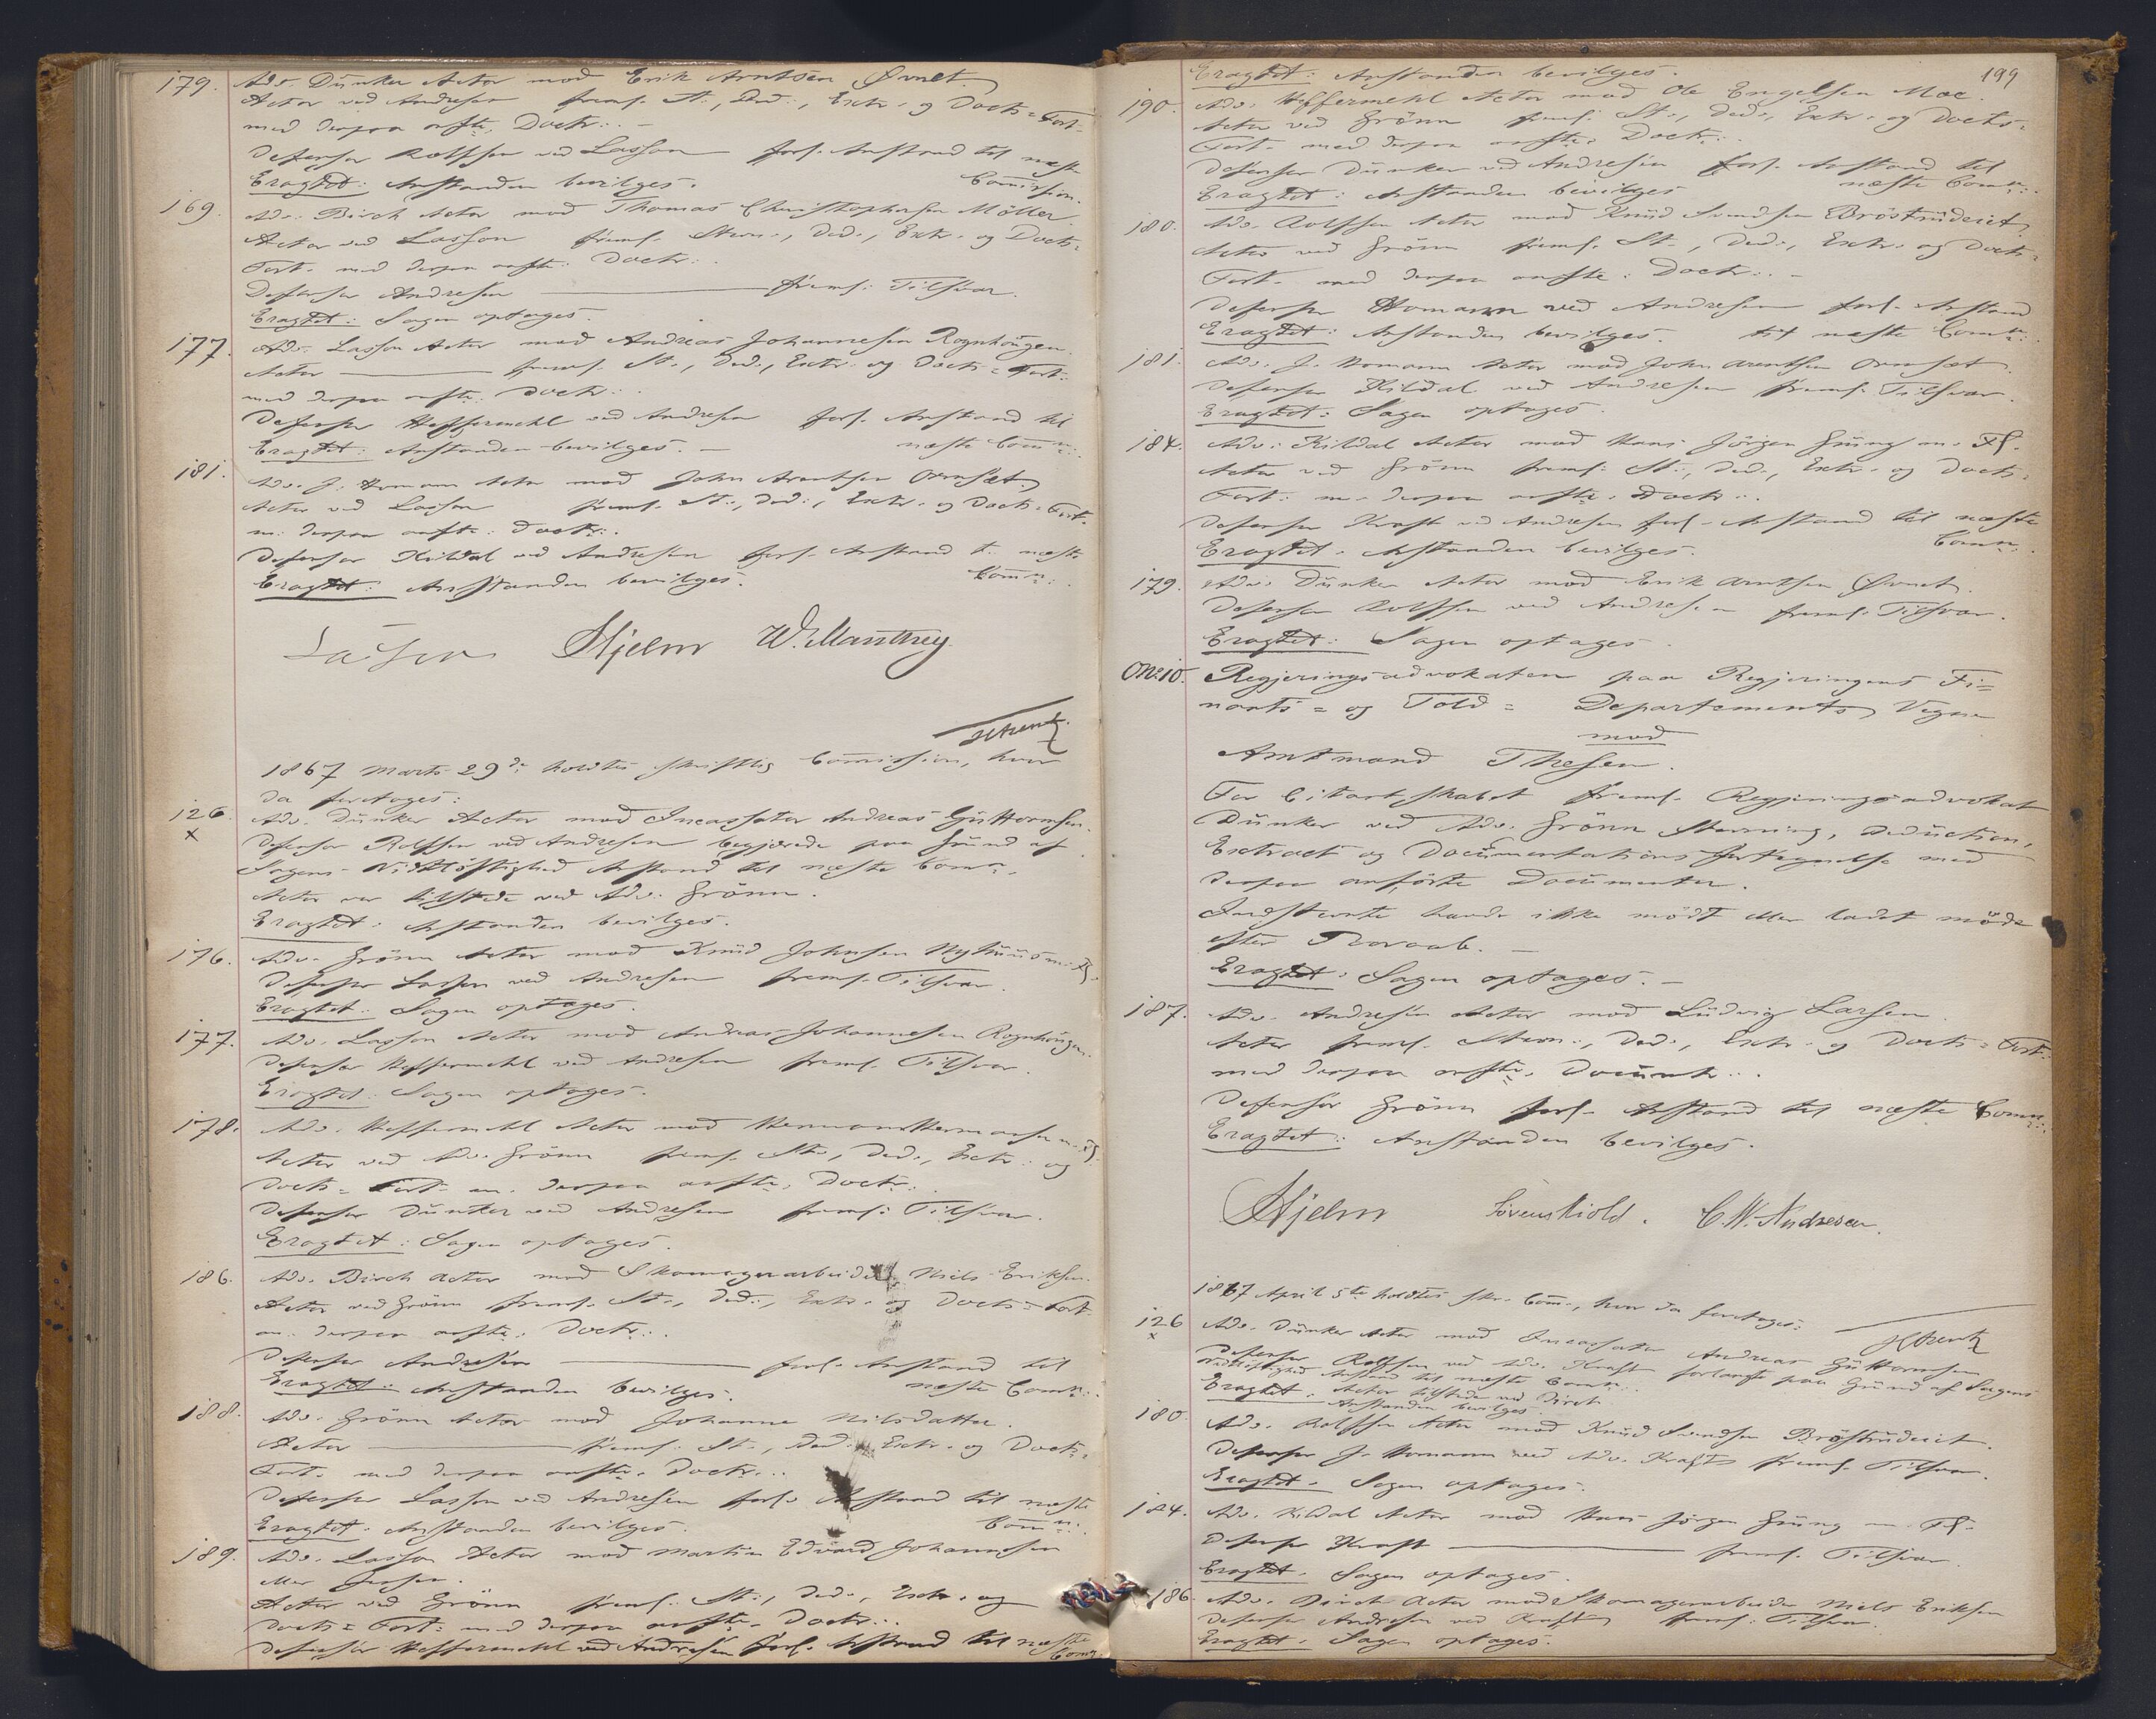 179. Adv. Dunker Actor mod Erik Arntsen Øvret.
Actor ved Andresen freml. St., Ded., Extr. og Docts= Fort.
med derpaa anfte. Doctr. –
Defensor Rolfsen ved Lasson forl. Anstand til næste
Eragtet: Anstanden bevilges. Commission.
169. Adv. Birch Actor mod Thomas Christophersen Möller.
Actor ved Lasson freml. Stevn., Ded., Extr. og Docts=
Fort. med derpaa anfte. Doctr.
Defensor Andresen — freml. Tilsvar.
Eragtet: Sagen optages.
177. Adv. Lasson Actor mod Andreas Johannesen Rognhaugen.
Actor — freml. St., Ded., Extr. og Docts= Fort.
med derpaa anfte. Doctr.
Defensor Heffermehl ved Andresen forl. Anstand til
Eragtet: Anstanden bevilges. – næste Commn.
181. Adv. J. Homann Actor mod John Arentsen Ornset.
Actor ved Lasson freml. St., Ded., Extr. og Docts= Fort.
m. derpaa anfte. Doctr.
Defensor Kildal ved Andresen forl. Anstand t. næste
Eragtet: Anstanden bevilges. Commn.
Lasson Hjelm W. Manthey
1867 Marts 29de holdtes skriftlig Commission, hvor
da foretoges:
126. Adv. Dunker Actor mod Incassator Andreas Guttormsen.
x Defensor Rolfsen ved Andresen begjærede paa Grund af
Sagens Vidtløftighed Anstand til næste Commn.
Actor var tilstede ved Adv. Grönn.
Eragtet: Anstanden bevilges.
176. Adv. Grönn Actor mod Knud Johnsen Nyhuus m. Fl.
Defensor Lasson ved Andresen freml. Tilsvar.
Eragtet: Sagen optages.
177. Adv. Lasson Actor mod Andreas Johannesen Rognhaugen.
Defensor Heffermehl ved Andresen freml. Tilsvar.
Eragtet: Sagen optages.
178. Adv. Heffermehl Actor mod Herman Hermansen m. Fl.
Actor ved Adv. Grönn freml. St., Ded., Extr. og
Docts= Fort. m. derpaa anfte. Doctr.
Defensor Dunker ved Andresen freml. Tilsvar.
Eragtet: Sagen optages.
186. Adv. Birch Actor mod Skomagerarbeider Niels Eriksen.
Actor ved Grönn freml. St., Ded., Extr. og Docts= Fort.
m. derpaa anfte. Doctr.
Defensor Andresen — forl. Anstand til
Eragtet: Anstanden bevilges. næste Commn.
188. Adv. Grönn Actor mod Johanne Nilsdatter.
Actor — freml. St., Ded., Extr. og Docts=
Fort. med derpaa anfte. Doctr.
Defensor Lasson ved Andresen forl. Anstand til næste
Eragtet: Anstanden bevilges. Commn.
189. Adv. Lasson Actor mod Martin Edvard Johannesen
eller Jensen.
Actor ved Grönn freml. St., Ded., Extr. og
Docts= Fort. med derpaa anfte. Doctr.
Defensor Heffermehl ved Andresen forl. Anstand til næste
Commn.
199
Eragtet: Anstanden bevilges.
190. Adv. Heffermehl Actor mod Ole Engelsen Moe.
Actor ved Grönn freml. St., Ded., Extr. og Docts=
Fort. med derpaa anfte. Doctr.
Defensor Dunker ved Andresen forl. Anstand til
Eragtet: Anstanden bevilges næste Commn.
180. Adv. Rolfsen Actor mod Knud Svendsen Bröstrudeiet,
Actor ved Grönn freml. St., Ded., Extr. og Docts=
Fort. med derpaa anfte. Doctr. –
Defensor Homann ved Andresen forl. Anstand
Eragtet: Anstanden bevilges. til næste Commn.
181. Adv. J. Homann Actor mod John Arentsen Ornset.
Defensor Kildal ved Andresen freml. Tilsvar.
Eragtet: Sagen optages.
184. Adv. Kildal Actor mod Hans Jörgen Gung m. Fl.
Actor ved Grönn freml. St., Ded., Extr. og Docts=
Fort. m. derpaa anfte. Doctr.
Defensor Kraft ved Andresen forl. Anstand til næste
Eragtet: Anstanden bevilges. Commn.
179. Adv. Dunker Actor mod Erik Arntsen Øvret.
Defensor Rolfsen ved Andresen freml. Tilsvar.
Eragtet: Sagen optages.
No 10. Regjeringsadvokaten paa Regjeringens Fi=
nants= og Told= Departements Vegne
mod
Amtmand Thesen.
For Citantskabet freml. Regjeringsadvokat
Dunker ved Adv. Grönn Stevning, Deduction,
Extract og Documentationsfortegnelse med
derpaa anförte Documenter.
Indstevnte havde ikke mödt eller ladet möde
efter Paaraab. –
Eragtet: Sagen optages. –
187. Adv. Andresen Actor mod Ludvig Larsen
Actor freml. Stevn., Ded., Extr. og Docts= Fort.
med derpaa anfte. Documtr.
Defensor Grönn forl. Anstand til næste Commn.
Eragtet: Anstanden bevilges.
Hjelm Lövenskiold. C. W. Andresen.
1867 April 5te holdtes skr. Com., hvor da foretoges:
126 Adv. Dunker Actor mod Incassator Andreas Guttormsen
x Defensor Rolfsen ved Adv. Kraft forlangte paa Grund af Sagens
Vidtløftighed Anstand til næste Commn.
Actor tilstede ved Birch
Eragtet: Anstanden bevilges
180. Adv. Rolfsen Actor mod Knud Svendsen Bröstrudeiet.
Defensor J. Homann ved Adv. Kraft freml. Tilsvar.
Eragtet: Sagen optages.
184. Adv. Kildal Actor mod Hans Jörgen Gung m. Fl.
Defensor Kraft — freml. Tilsvar.
Eragtet: Sagen optages.
186. Adv. Birch Actor mod Skomagerarbeider Niels Eriksen
Defensor Andresen ved Kraft freml. Tilsvar.
Eragtet: Sagen optages.